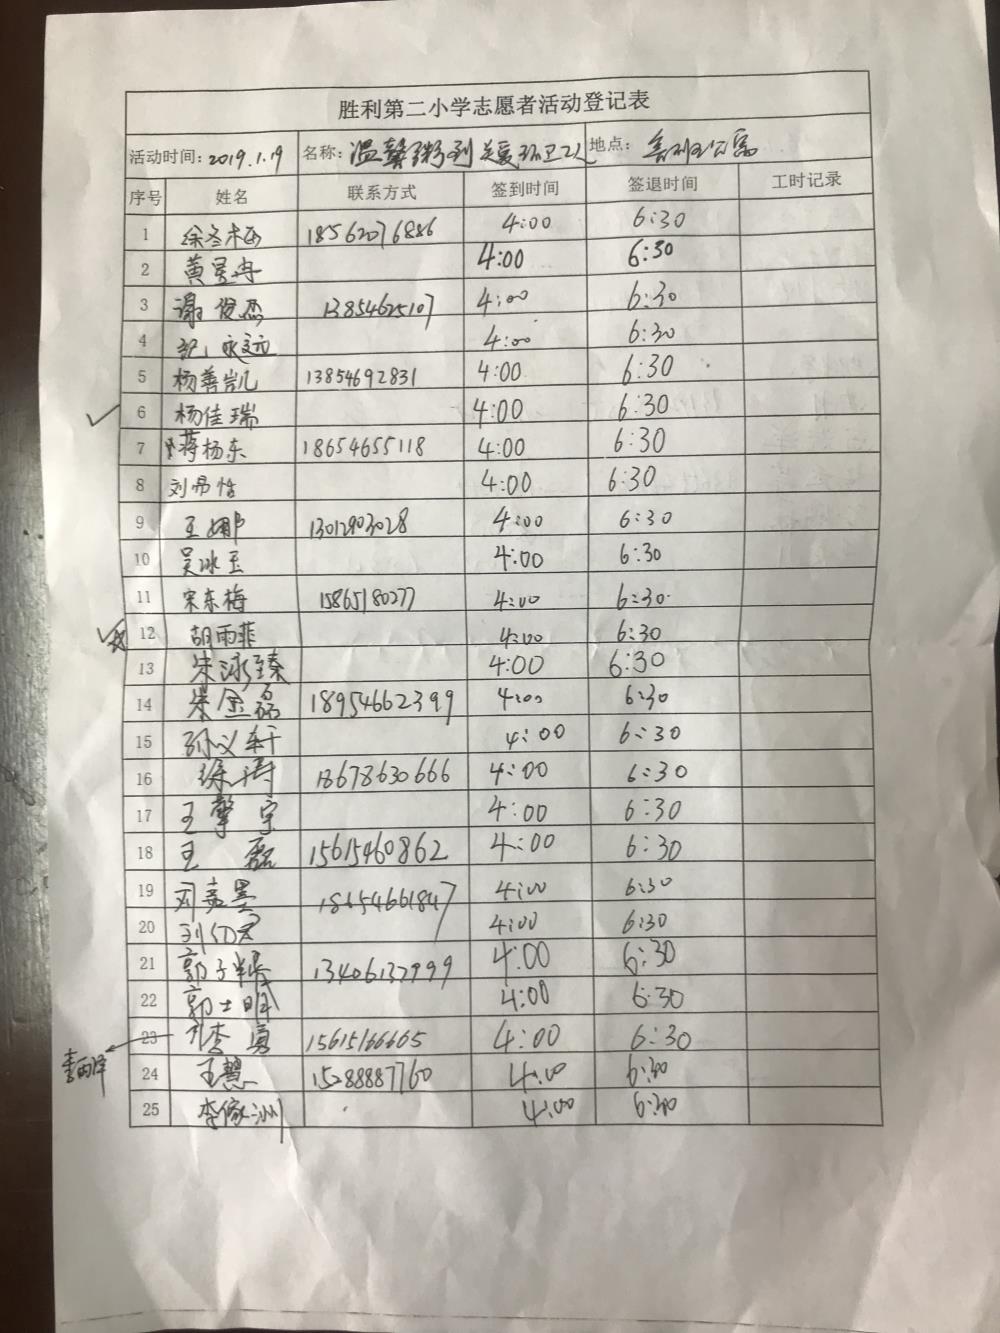 胜利第二小学志愿者活动登记表
活动时间：2019.1.19 名称：温馨粥到 关爱环卫工人 地点：
序号 姓名 联系方式 签到时间 签退时间 工时记录
1 徐冬梅 18562076886 4:00 6:30
2 黄昱冉 4:00 6:30
3 谢俊杰 13854625107 4:00 6:30
4 4:00 6:30
5 杨善凯 13854692831 4:00 6:30
6 杨佳瑞 4:00 6:30
7 蒋杨东 18654655118 4:00 6:30
8 刘易恬 4:00 6:30
9 王娜 13012903028 4:00 6:30
10 吴冰玉 4:00 6:30
11 宋东梅 15865180277 4:00 6:30
12 胡雨菲 4:00 6:30
13 朱泳臻 4:00 6:30
14 朱金磊 18954662399 4:00 6:30
15 孙义轩 4:00 6:30
16 徐涛 18678630666 4:00 6:30
17 王擎宇 4:00 6:30
18 王磊 15615460862 4:00 6:30
19 刘嘉墨 18654661847 4:00 6:30
20 4:00 6:30
21 郭子 13406137999 4:00 6:30
22 郭士明 4:00 6:30
23 李勇 15615166665 4:00 6:30
24 王慧 15288887760 4:00 6:30
25 李 洲 4:00 6:30